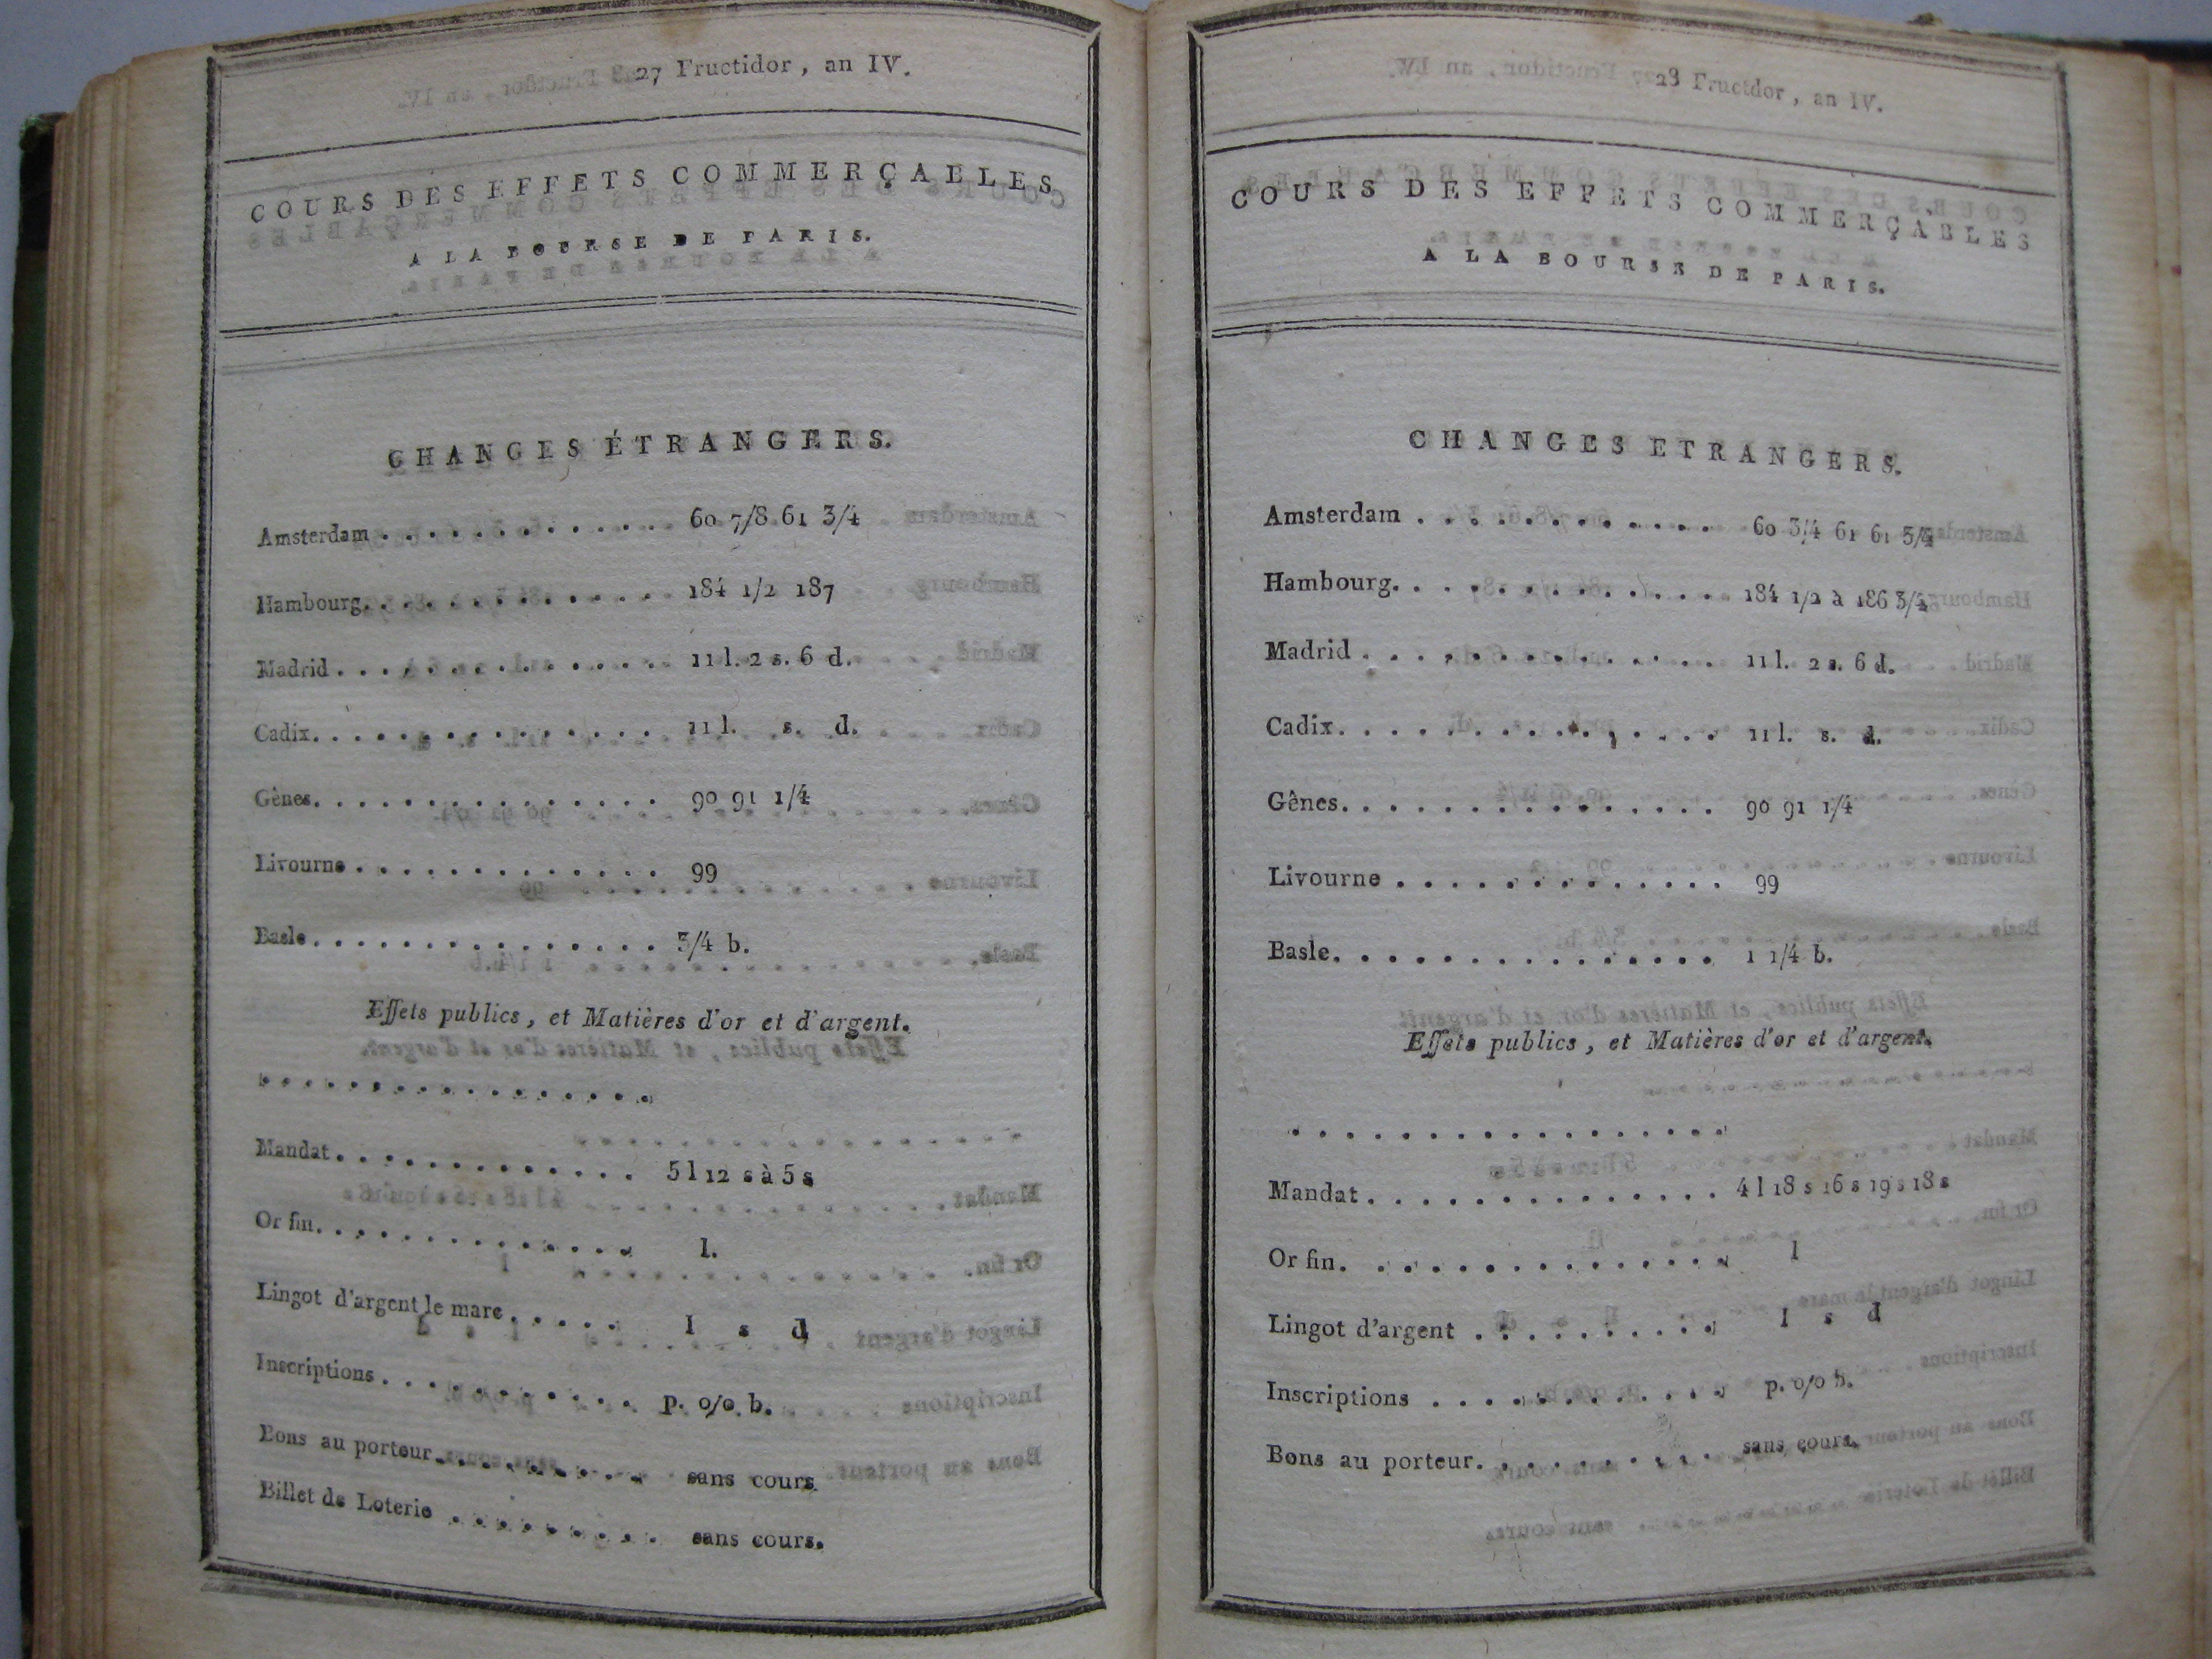 27 Fructidor, an IV.
COURS DES EFFETS COMMERÇABLES
A LA BOURSE DE PARIS.
CHANGES ÉTRANGERS.
Amsterdam . . . . . . . . . . . . . 60 7/8 61 3/4
Hambourg. . . . . . . . . . . . . . 184 1/2 187
Madrid . . . . . . . . . . . . . . . 11 l. 2 s. 6 d.
Cadix. . . . . . . . . . . . . . . . 11 l. s. d.
Gènes. . . . . . . . . . . . . . . . 90 91 1/4
Livourne . . . . . . . . . . . . . . 99
Basle. . . . . . . . . . . . . . . . 3/4 b.
Effets publics, et Matières d'or et d'argent.
. . . . . . . . . . . . . . . . .
Mandat . . . . . . . . . . . . . . 5 l 12 s à 5 s
Or fin. . . . . . . . . . . . . . . l.
Lingot d'argent le marc . . . . . . l s d
Inscriptions . . . . . . . . . . . p. o/o b.
Bons au porteur . . . . . . . . . sans cours
Billet de Loterie . . . . . . . . . sans cours.
28 Fructdor, an IV.
COURS DES EFFETS COMMERÇABLES
A LA BOURSE DE PARIS.
CHANGES ETRANGERS.
Amsterdam . . . . . . . . . . . . . 60 3/4 61 61 3/4
Hambourg. . . . . . . . . . . . . . 184 1/2 à 186 3/4
Madrid . . . . . . . . . . . . . . . 11 l. 2 s. 6 d.
Cadix. . . . . . . . . . . . . . . . 11 l. s. d.
Gênes. . . . . . . . . . . . . . . . 90 91 1/4
Livourne . . . . . . . . . . . . . . 99
Basle. . . . . . . . . . . . . . . . 1 1/4 b.
Effets publics, et Matières d'or et d'argent.
. . . . . . . . . . . . . . . . .
Mandat . . . . . . . . . . . . . . 4 l 18 s 16 s 19 s 18 s
Or fin. . . . . . . . . . . . . . . l
Lingot d'argent . . . . . . . . . . l s d
Inscriptions . . . . . . . . . . . p. o/o b.
Bons au porteur. . . . . . . . . . sans cours.